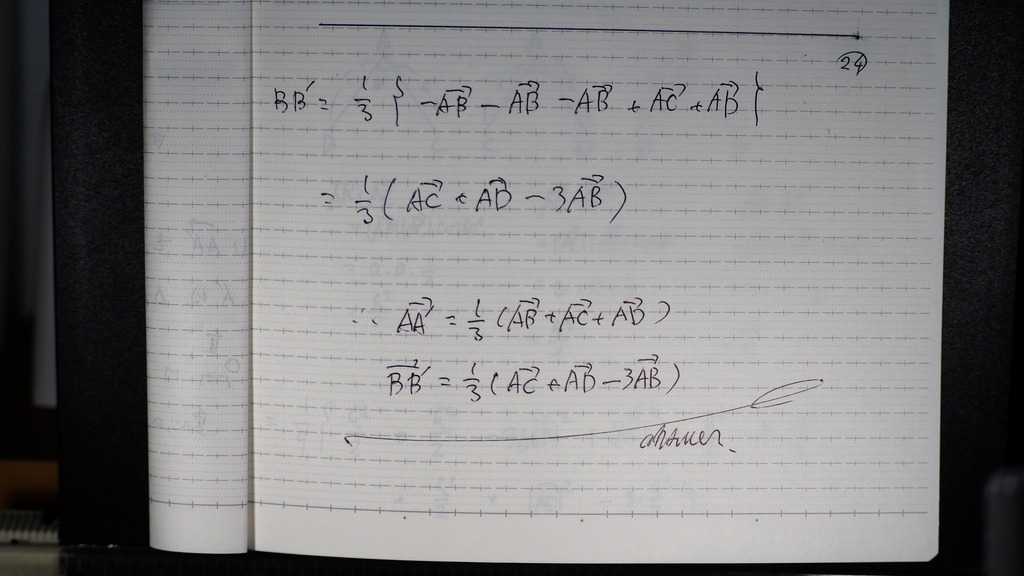 24
BB' = 1/3 { -AB⃗ - AB⃗ - AB⃗ + AC⃗ + AD⃗ }
= 1/3 ( AC⃗ + AD⃗ - 3AB⃗ )
∴ AA'⃗ = 1/3 (AB⃗ + AC⃗ + AD⃗ )
BB'⃗ = 1/3 ( AC⃗ + AD⃗ - 3AB⃗ )
answer